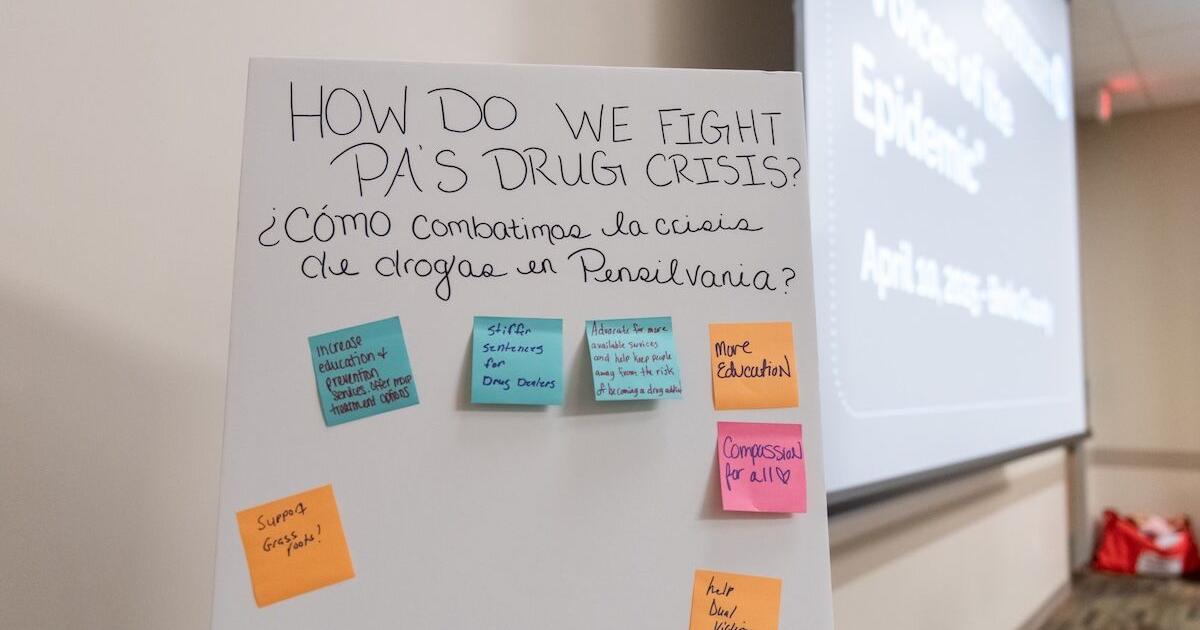 HOW DO WE FIGHT
PA'S DRUG CRISIS?
¿CÓMO combatimos la crisis
de drogas en Pensilvania?
increase
education &
prevention
services. offer more
treatment options
Stiffer
sentences
for
Drug Dealers
Advocate for more
available services
and help keep people
away from the risk
of becoming a drug addict
More
Education
Compassion
for all ♡
Support
Grass
roots!
help
Dual
Voices of the
Epidemic"
April 10, 2025 - Berks County